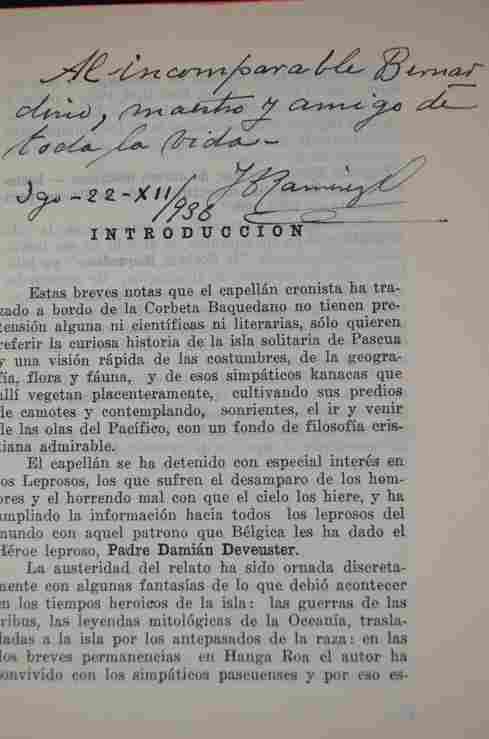 Al incomparable Bernar
dino, maestro y amigo de
toda la vida-
Sgo-22-XII/938
INTRODUCCION
Estas breves notas que el capellán cronista ha tra-
zado a bordo de la Corbeta Baquedano no tienen pre-
tensión alguna ni científicas ni literarias, sólo quieren
referir la curiosa historia de la isla solitaria de Pascua
y una visión rápida de las costumbres, de la geogra-
fía, flora y fáuna, y de esos simpáticos kanacas que
allí vegetan placenteramente, cultivando sus predios
de camotes y contemplando, sonrientes, el ir y venir
de las olas del Pacífico, con un fondo de filosofía cris-
tiana admirable.
El capellán se ha detenido con especial interés en
los Leprosos, los que sufren el desamparo de los hom-
bres y el horrendo mal con que el cielo los hiere, y ha
ampliado la información hacia todos los leprosos del
mundo con aquel patrono que Bélgica les ha dado el
Héroe leproso, Padre Damián Deveuster.
La austeridad del relato ha sido ornada discreta-
mente con algunas fantasías de lo que debió acontecer
en los tiempos heroicos de la isla: las guerras de las
tribus, las leyendas mitológicas de la Oceanía, trasla-
dadas a la isla por los antepasados de la raza: en las
dos breves permanencias en Hanga Roa el autor ha
convivido con los simpáticos pascuenses y por eso es-